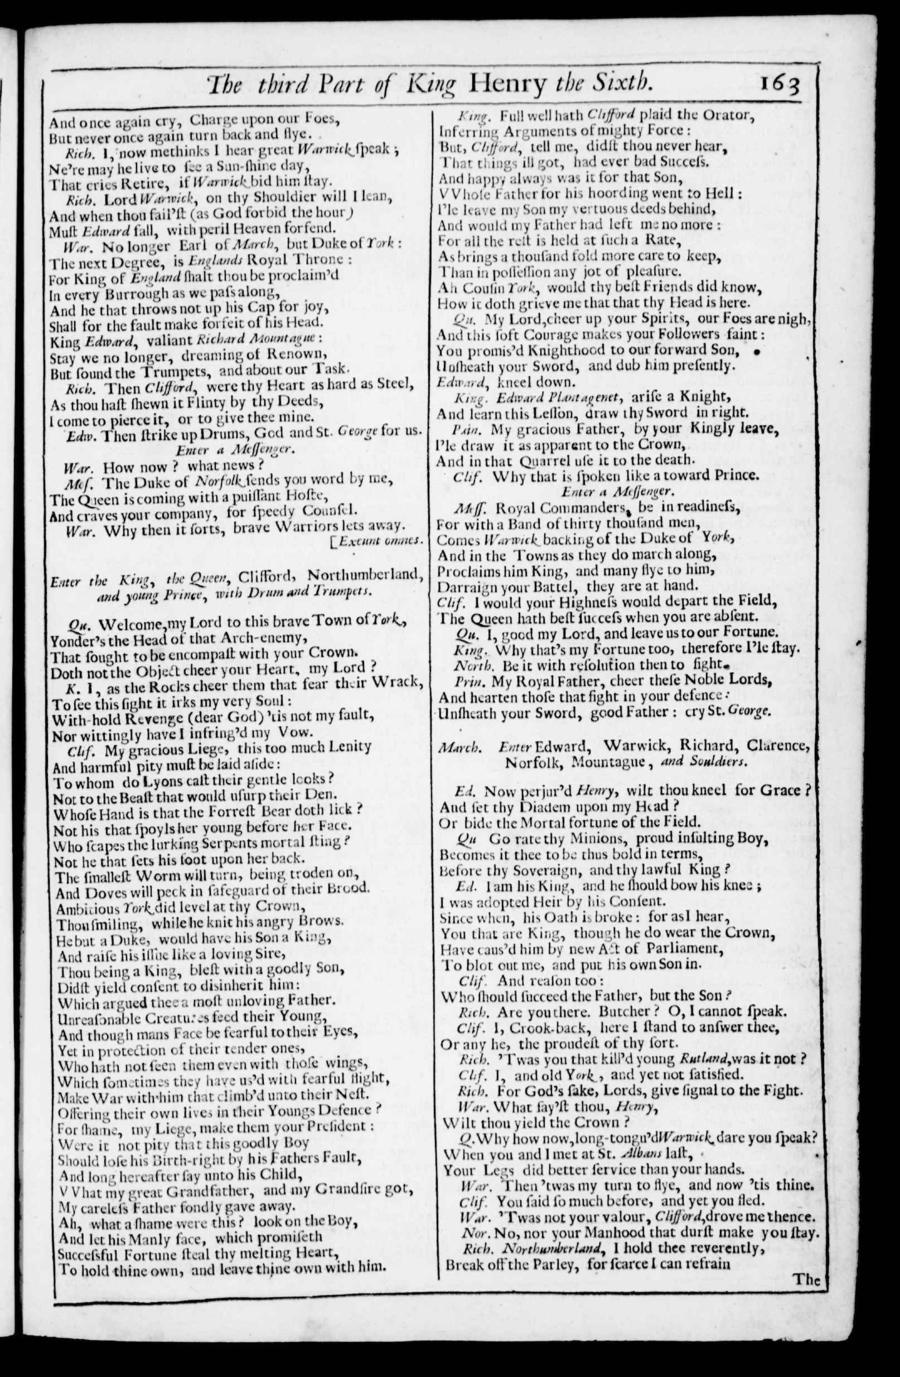 The third Part of King Henry the Sixth. 163
And once again cry, Charge upon our Foes,
But never once again turn back and flye.
Rich. I, now methinks I hear great Warwick ſpeak ;
Ne're may he live to ſee a Sun-ſhine day,
That cries Retire, if Warwick bid him ſtay.
Rich. Lord Warwick, on thy Shouldier will I lean,
And when thou fail'ſt (as God forbid the hour)
Muſt Edward fall, with peril Heaven forfend.
War. No longer Earl of March, but Duke of York :
The next Degree, is Englands Royal Throne :
For King of England ſhalt thou be proclaim'd
In every Burrough as we paſs along,
And he that throws not up his Cap for joy,
Shall for the fault make forfeit of his Head.
King Edward, valiant Richard Mountague :
Stay we no longer, dreaming of Renown,
But ſound the Trumpets, and about our Task.
Rich. Then Clifford, were thy Heart as hard as Steel,
As thou haſt ſhewn it Flinty by thy Deeds,
I come to pierce it, or to give thee mine.
Edw. Then ſtrike up Drums, God and St. George for us.
Enter a Meſſenger.
War. How now ? what news ?
Meſ. The Duke of Norfolk ſends you word by me,
The Queen is coming with a puiſſant Hoſte,
And craves your company, for ſpeedy Counſel.
War. Why then it ſorts, brave Warriors lets away.
[Exeunt omnes.
Enter the King, the Queen, Clifford, Northumberland,
and young Prince, with Drum and Trumpets.
Qu. Welcome, my Lord to this brave Town of York,
Yonder's the Head of that Arch-enemy,
That ſought to be encompaſt with your Crown.
Doth not the Object cheer your Heart, my Lord ?
K. I, as the Rocks cheer them that fear their Wrack,
To ſee this ſight it irks my very Soul :
With-hold Revenge (dear God) 'tis not my fault,
Nor wittingly have I infring'd my Vow.
Clif. My gracious Liege, this too much Lenity
And harmful pity muſt be laid aſide :
To whom do Lyons caſt their gentle looks ?
Not to the Beaſt that would uſurp their Den.
Whoſe Hand is that the Forreſt Bear doth lick ?
Not his that ſpoyls her young before her Face.
Who ſcapes the lurking Serpents mortal ſting ?
Not he that ſets his foot upon her back.
The ſmalleſt Worm will turn, being troden on,
And Doves will peck in ſafeguard of their Brood.
Ambitious York did level at thy Crown,
Thou ſmiling, while he knit his angry Brows.
He but a Duke, would have his Son a King,
And raiſe his iſſue like a loving Sire,
Thou being a King, bleſt with a goodly Son,
Didſt yield conſent to disinherit him :
Which argued thee a moſt unloving Father.
Unreaſonable Creatures feed their Young,
And though mans Face be fearful to their Eyes,
Yet in protection of their tender ones,
Who hath not ſeen them even with thoſe wings,
Which ſometimes they have us'd with fearful flight,
Make War with him that climb'd unto their Neſt.
Offering their own lives in their Youngs Defence ?
For ſhame, my Liege, make them your Preſident :
Were it not pity that this goodly Boy
Should loſe his Birth-right by his Fathers Fault,
And long hereafter ſay unto his Child,
VVhat my great Grandfather, and my Grandſire got,
My careleſs Father fondly gave away.
Ah, what a ſhame were this ? look on the Boy,
And let his Manly face, which promiſeth
Succeſsful Fortune ſteal thy melting Heart,
To hold thine own, and leave thine own with him.
King. Full well hath Clifford plaid the Orator,
Inferring Arguments of mighty Force :
But, Clifford, tell me, didſt thou never hear,
That things ill got, had ever bad Succeſs.
And happy always was it for that Son,
VVhoſe Father for his hoording went to Hell :
I'le leave my Son my vertuous deeds behind,
And would my Father had left me no more :
For all the reſt is held at ſuch a Rate,
As brings a thouſand fold more care to keep,
Than in poſſeſſion any jot of pleaſure.
Ah Couſin York, would thy beſt Friends did know,
How it doth grieve me that that thy Head is here.
Qu. My Lord, cheer up your Spirits, our Foes are nigh,
And this ſoft Courage makes your Followers faint :
You promis'd Knighthood to our forward Son,
Unſheath your Sword, and dub him preſently.
Edward, kneel down.
King. Edward Plantagenet, ariſe a Knight,
And learn this Leſſon, draw thy Sword in right.
Prin. My gracious Father, by your Kingly leave,
I'le draw it as apparent to the Crown,
And in that Quarrel uſe it to the death.
Clif. Why that is ſpoken like a toward Prince.
Enter a Meſſenger.
Meſſ. Royal Commanders, be in readineſs,
For with a Band of thirty thouſand men,
Comes Warwick backing of the Duke of York,
And in the Towns as they do march along,
Proclaims him King, and many flye to him,
Darraign your Battel, they are at hand.
Clif. I would your Highneſs would depart the Field,
The Queen hath beſt ſucceſs when you are abſent.
Qu. I, good my Lord, and leave us to our Fortune.
King. Why that's my Fortune too, therefore I'le ſtay.
North. Be it with reſolution then to fight.
Prin. My Royal Father, cheer theſe Noble Lords,
And hearten thoſe that fight in your defence :
Unſheath your Sword, good Father : cry St. George.
March. Enter Edward, Warwick, Richard, Clarence,
Norfolk, Mountague, and Souldiers.
Ed. Now perjur'd Henry, wilt thou kneel for Grace ?
And ſet thy Diadem upon my Head ?
Or bide the Mortal fortune of the Field.
Qu Go rate thy Minions, proud inſulting Boy,
Becomes it thee to be thus bold in terms,
Before thy Soveraign, and thy lawful King ?
Ed. I am his King, and he ſhould bow his knee ;
I was adopted Heir by his Conſent.
Since when, his Oath is broke : for as I hear,
You that are King, though he do wear the Crown,
Have caus'd him by new Act of Parliament,
To blot out me, and put his own Son in.
Clif. And reaſon too :
Who ſhould ſucceed the Father, but the Son ?
Rich. Are you there. Butcher ? O, I cannot ſpeak.
Clif. I, Crook-back, here I ſtand to anſwer thee,
Or any he, the proudeſt of thy ſort.
Rich. 'Twas you that kill'd young Rutland, was it not ?
Clif. I, and old York, and yet not ſatisfied.
Rich. For God's ſake, Lords, give ſignal to the Fight.
War. What ſay'ſt thou, Henry,
Wilt thou yield the Crown ?
Q. Why how now, long-tongu'd Warwick dare you ſpeak ?
When you and I met at St. Albans laſt,
Your Legs did better ſervice than your hands.
War. Then 'twas my turn to flye, and now 'tis thine.
Clif. You ſaid ſo much before, and yet you fled.
War. 'Twas not your valour, Clifford, drove me thence.
Nor. No, nor your Manhood that durſt make you ſtay.
Rich. Northumberland, I hold thee reverently,
Break off the Parley, for ſcarce I can refrain
The